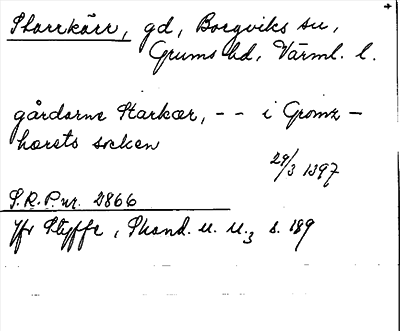 Starrkärr, gd, Borgviks sn,
Grums hd, Värml. l.
gårdarne Starkær, - - i Gromz-
hærets socken
29/3 1397
S.R.P. nr. 2866
Jfr Styffe, Skand. u. U.3 s. 189